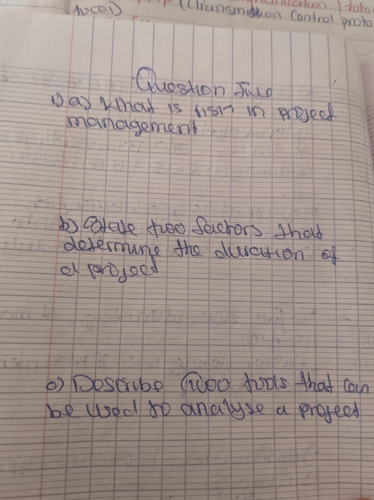 (Transmission Control proto
tocol)
Question Two
1) a) What is risk in project
management
b) State two factors that
determine the duration of
a project
c) Describe two tools that can
be used to analyse a project